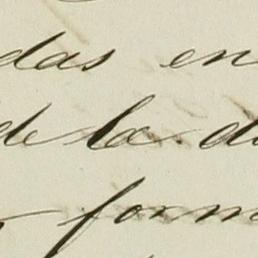 das en
de la d
form